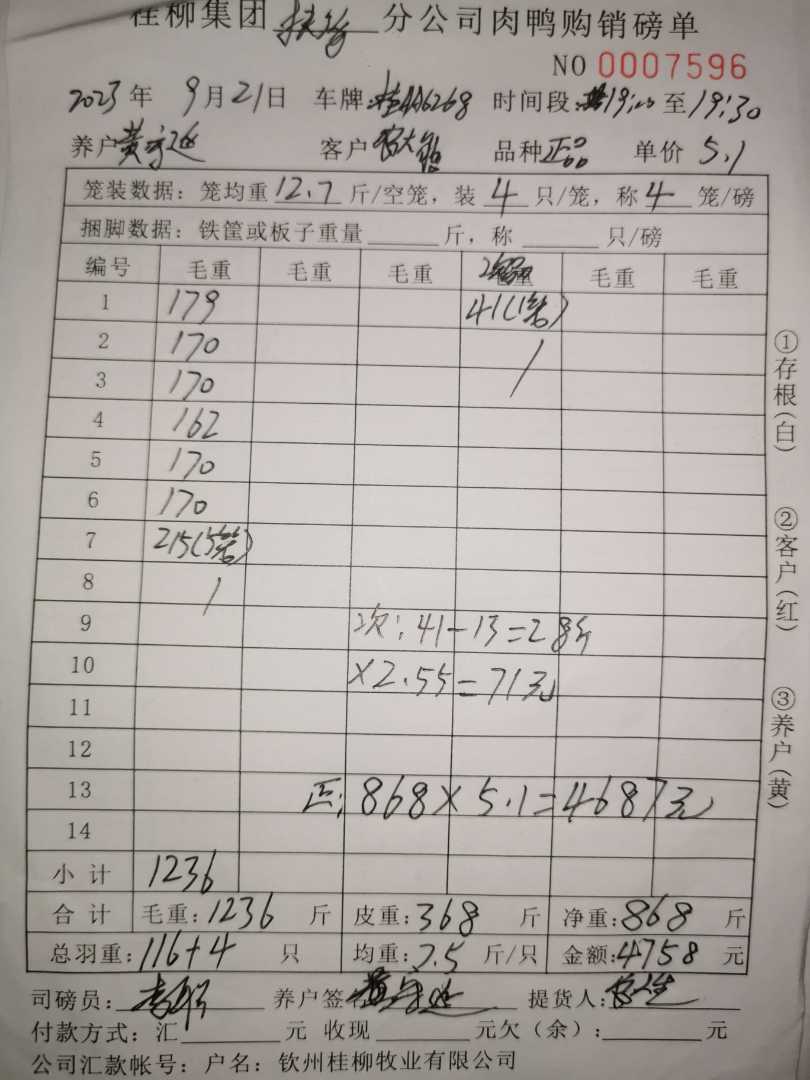 桂柳集团扶绥分公司肉鸭购销磅单
NO 0007596
2023年 9月21日 车牌:桂AA6268 时间段:19:20至19:30
养户 黄 客户 品种 正品 单价 5.1
笼装数据：笼均重12.7斤/空笼，装4只/笼，称4笼/磅
捆脚数据：铁筐或板子重量 斤，称 只/磅
编号 毛重 毛重 毛重 毛重 毛重
1 179 41(1笼)
2 170
3 170
4 162
5 170
6 170
7 215(5笼)
8
9 次:41-13=28斤
10 ×2.55=71元
11
12
13 正:868×5.1=4687元
14
小计 1236
合计 毛重:1236斤 皮重:368斤 净重:868斤
总羽重:116+4只 均重:7.5斤/只 金额:4758元
司磅员: 养户签名 黄 提货人:
付款方式：汇 元 收现 元欠（余）: 元
公司汇款帐号：户名：钦州桂柳牧业有限公司
①存根(白)
②客户(红)
③养户(黄)